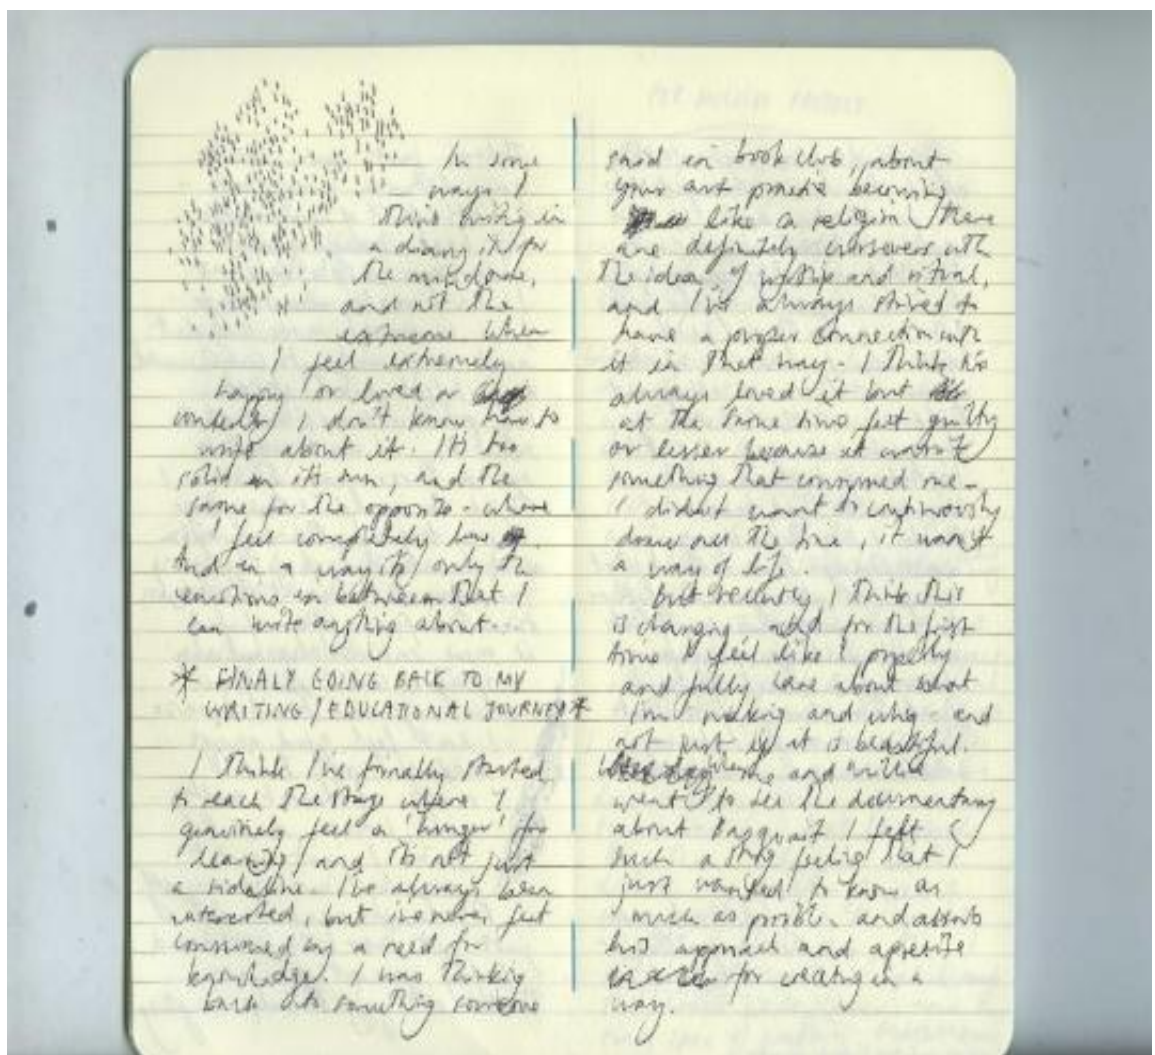 In some
ways I
think writing in
a diary is for
the mundane,
and not the
extreme when
I feel extremely
happy or loved or
I don't know how to
write about it. It's too
solid in its own, and the
same for the opposite - where
I feel completely low
And in a way it's only the
emotions in between that I
can write anything about.
* FINALY GOING BACK TO MY
WRITING / EDUCATIONAL JOURNEY *
I think I've finally started
to reach the stage where I
genuinely feel a 'hunger' for
learning, and its not just
a sideline. I've always been
interested, but ive never felt
consumed by a need for
knowledge. I was thinking
back to something someone
said in book club, about
your art practise becoming
like a religion, there
are definitely crossovers with
the idea of worship and ritual,
and I've always strived to
have a proper connection with
it in that way. I think I've
always loved it but
at the same time felt guilty
or lesser because it wasn't
something that consumed me -
I didn't want to continuously
draw all the time, it wasn't
a way of life.
but recently, I think this
is changing, and for the first
time I feel like I properly
and fully care about what
I'm making and why and
not just if it is beautiful.
me and
went to see the documentary
about Basquiat I left
such a strong feeling that I
just wanted to know as
much as possible and absorb
his approach and appetite
for creating in a
way.